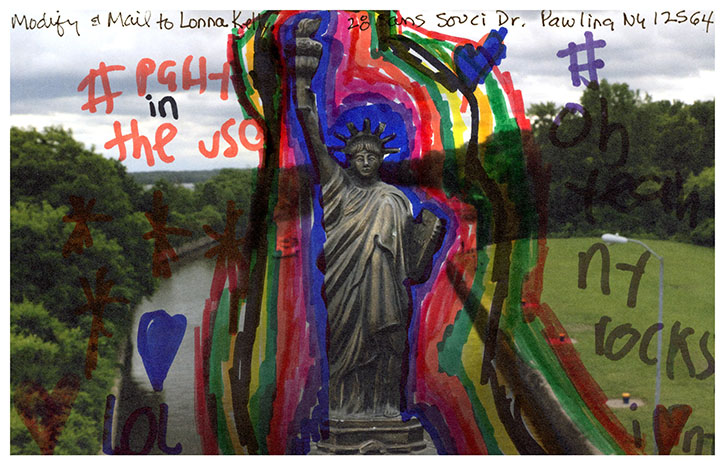 Modify & Mail to Lonna 28 Sans Souci Dr. Pawling NY 12564
# PARty
in
the USA
#
Oh
yeah
ny
rocks
LOL
i ♥ ny